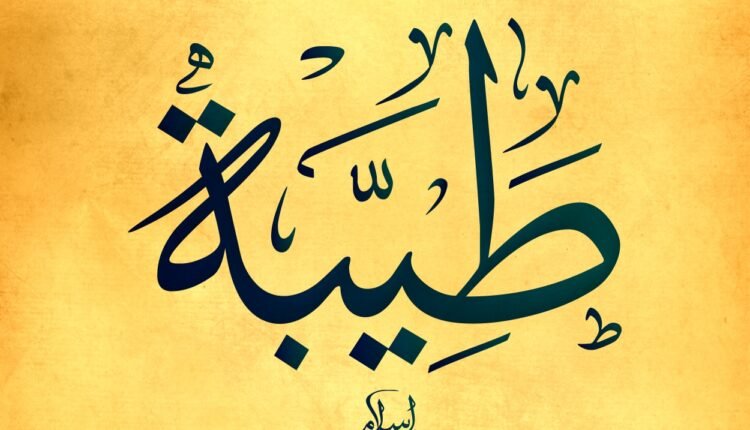 طَيِّبَةُ
اسلام